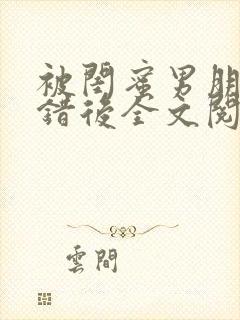 被閨蜜男朋
錯後全文閱
雲間